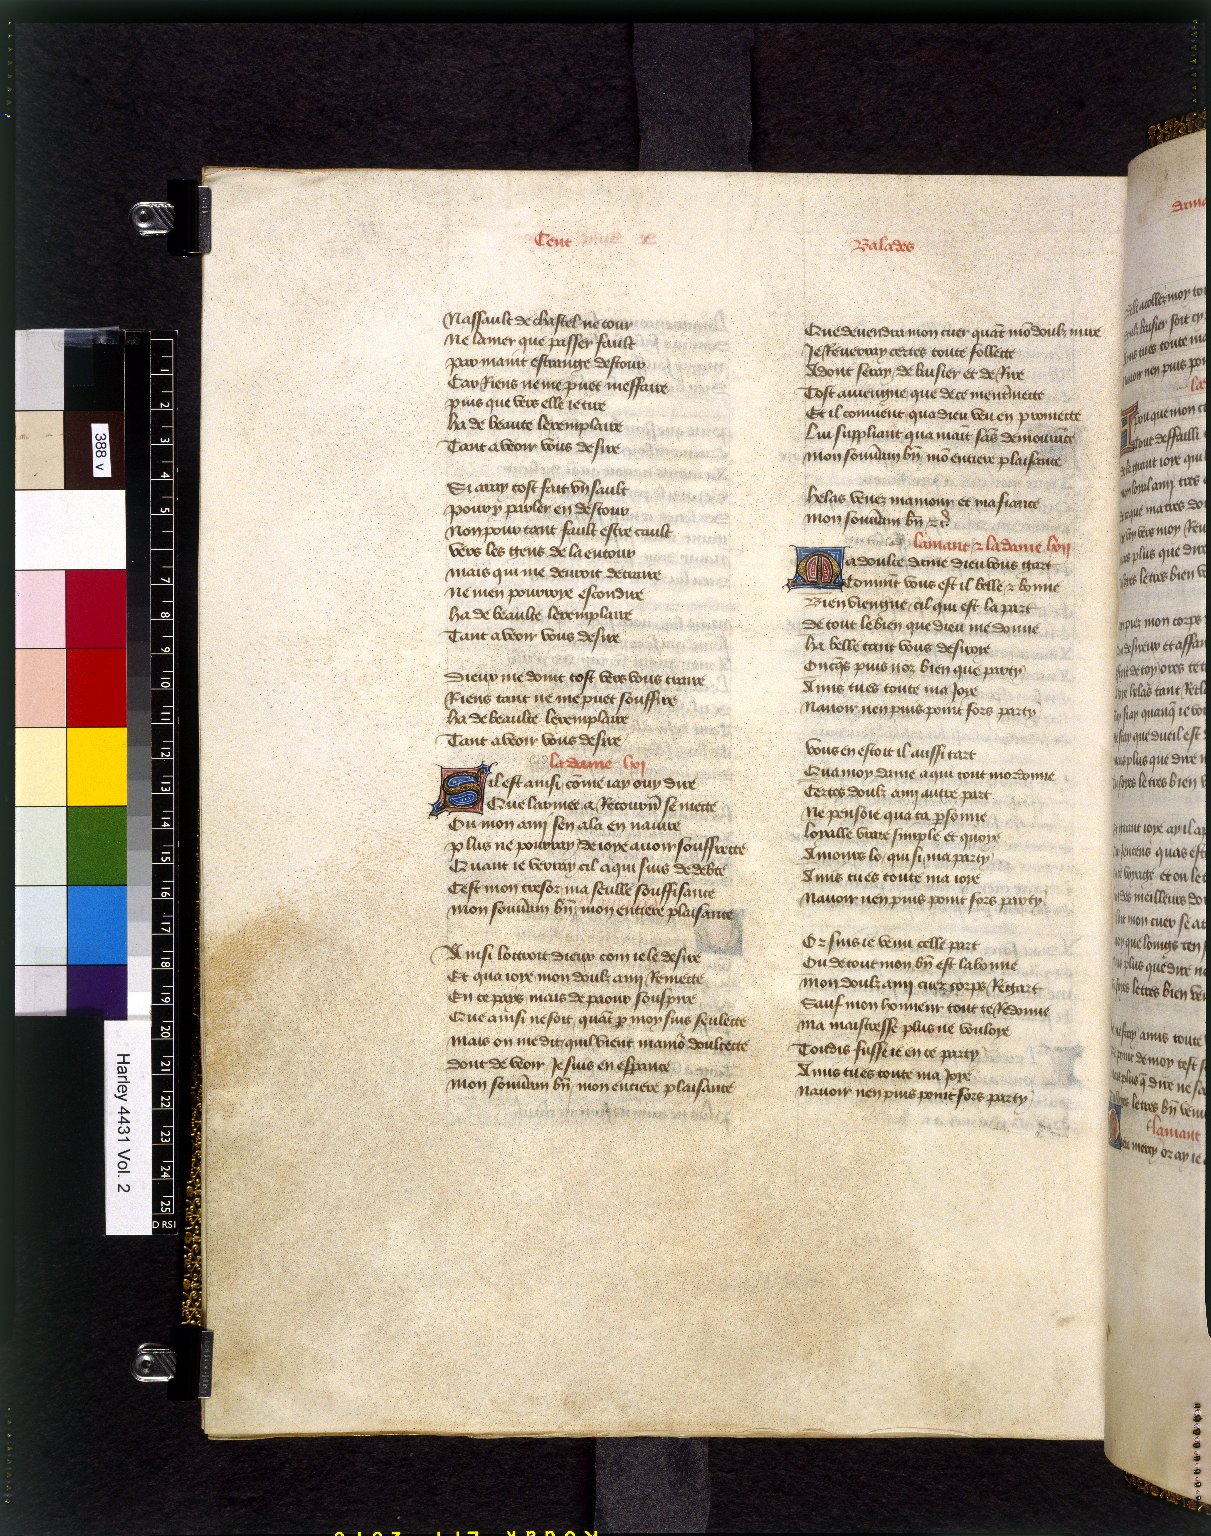 Cent
Balades
Nassault de chastel ne tour
Ne lamer que passer fault
par maint estrange destour
Car Riens ne me puet meffaire
puis que vers elle ie tire
ha de beaute lexemplaire
Tant aveoir vous desire
Si aray tost fait vn sault
pour y parler en destour
Non pour tant fault estre cault
vers les gens de la entour
mais qui me deuroit detraire
Ne men pourroye escondire
ha de beaulte lexemplaire
Tant aveoir vous desire
Dieux me doint tost vers vous traire
Riens tant ne me puet souffire
ha de beaulte lexemplaire
Tant aveoir vous desire
la dame lxj
Sil est ainsi, cōme iay ouy dire
Que larmee a Retourn se mette
Ou mon ami sen ala en nauire
plus ne pourray de ioye auoir souffrette
Quant ie verray cil a qui suis de debte
Cest mon tresor ma seulle souffisance
mon souurain bn mon entiere plaisance
Ainsi lottroit dieux com ie le desire
Et qua ioye mon doulz ami Remette
En ce pays mais de paour souspire
Que ainsi ne soit, quāt p moy suis seulette
mais on me dit quil vient mamō doulcette
dont de veoir Je suis en esperance
mon souurain bn mon entiere plaisance
Que deuendra mon cuer quāt mō doulz mire
Je Reuerray certes toute follette
Adont seray, de baisier et de Rire
Tost auiengne que de ce mentremette
Et il conuient qua dieu veu en promette
Lui suppliant qua mait sās demourāce
mon souurain bn mō entiere plaisance
helas venez mamour et ma fiance
mon souurain bn ⁊c
lamant ⁊ la dame lxij
Ma doulce dame dieu vous gart
Comment vous est il belle ⁊ bonne
Bien viengne cil qui est la part
de tout le bien que dieu me donne
ha belle tant vous desiroye
Oncqs puis noz bien que party
Amis tu es toute ma Joye
Nauoir nen puis point fors party
vous en estoit il aussi tart
Qua moy dame a qui tout mordonne
Certes doulz ami autre part
Ne pensoie qua ta psonne
loyalle vraye simple et quoye
Amours lo, qui si ma party
Amis tu es toute ma ioye
Nauoir nen puis point fors party
Or suis ie venu celle part
Ou de tout mon bn est la bonne
mon doulz ami cuer corps Regart
Sauf mon honneur tout te Redonne
ma maistresse plus ne vouloye
Toudis fusse ie en ce party
Amis tu es toute ma Joye
nauoir nen puis point fors party
388 v
Harley 4431 Vol. 2